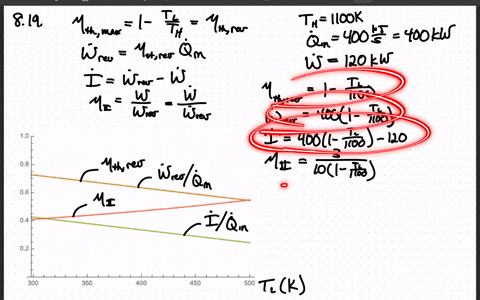 8.19.
η_th,max = 1 - T_L/T_H = η_th,rev
Ẇ_rev = η_th,rev Q̇_in
İ = Ẇ_rev - Ẇ
η_II = W/W_rev = Ẇ/Ẇ_rev
T_H = 1100K
Q̇_in = 400 kJ/s = 400 kW
Ẇ = 120 kW
η_th,rev = 1 - T_L/1100
= 400(1 - T_L/1100)
İ = 400(1 - T_L/1100) - 120
η_II = 3/10(1 - T_L/1100)
1.0
0.8
0.6
0.4
0.2
300
350
400
450
500
η_th,rev
Ẇ_rev/Q̇_in
η_II
İ/Q̇_in
T_L (K)